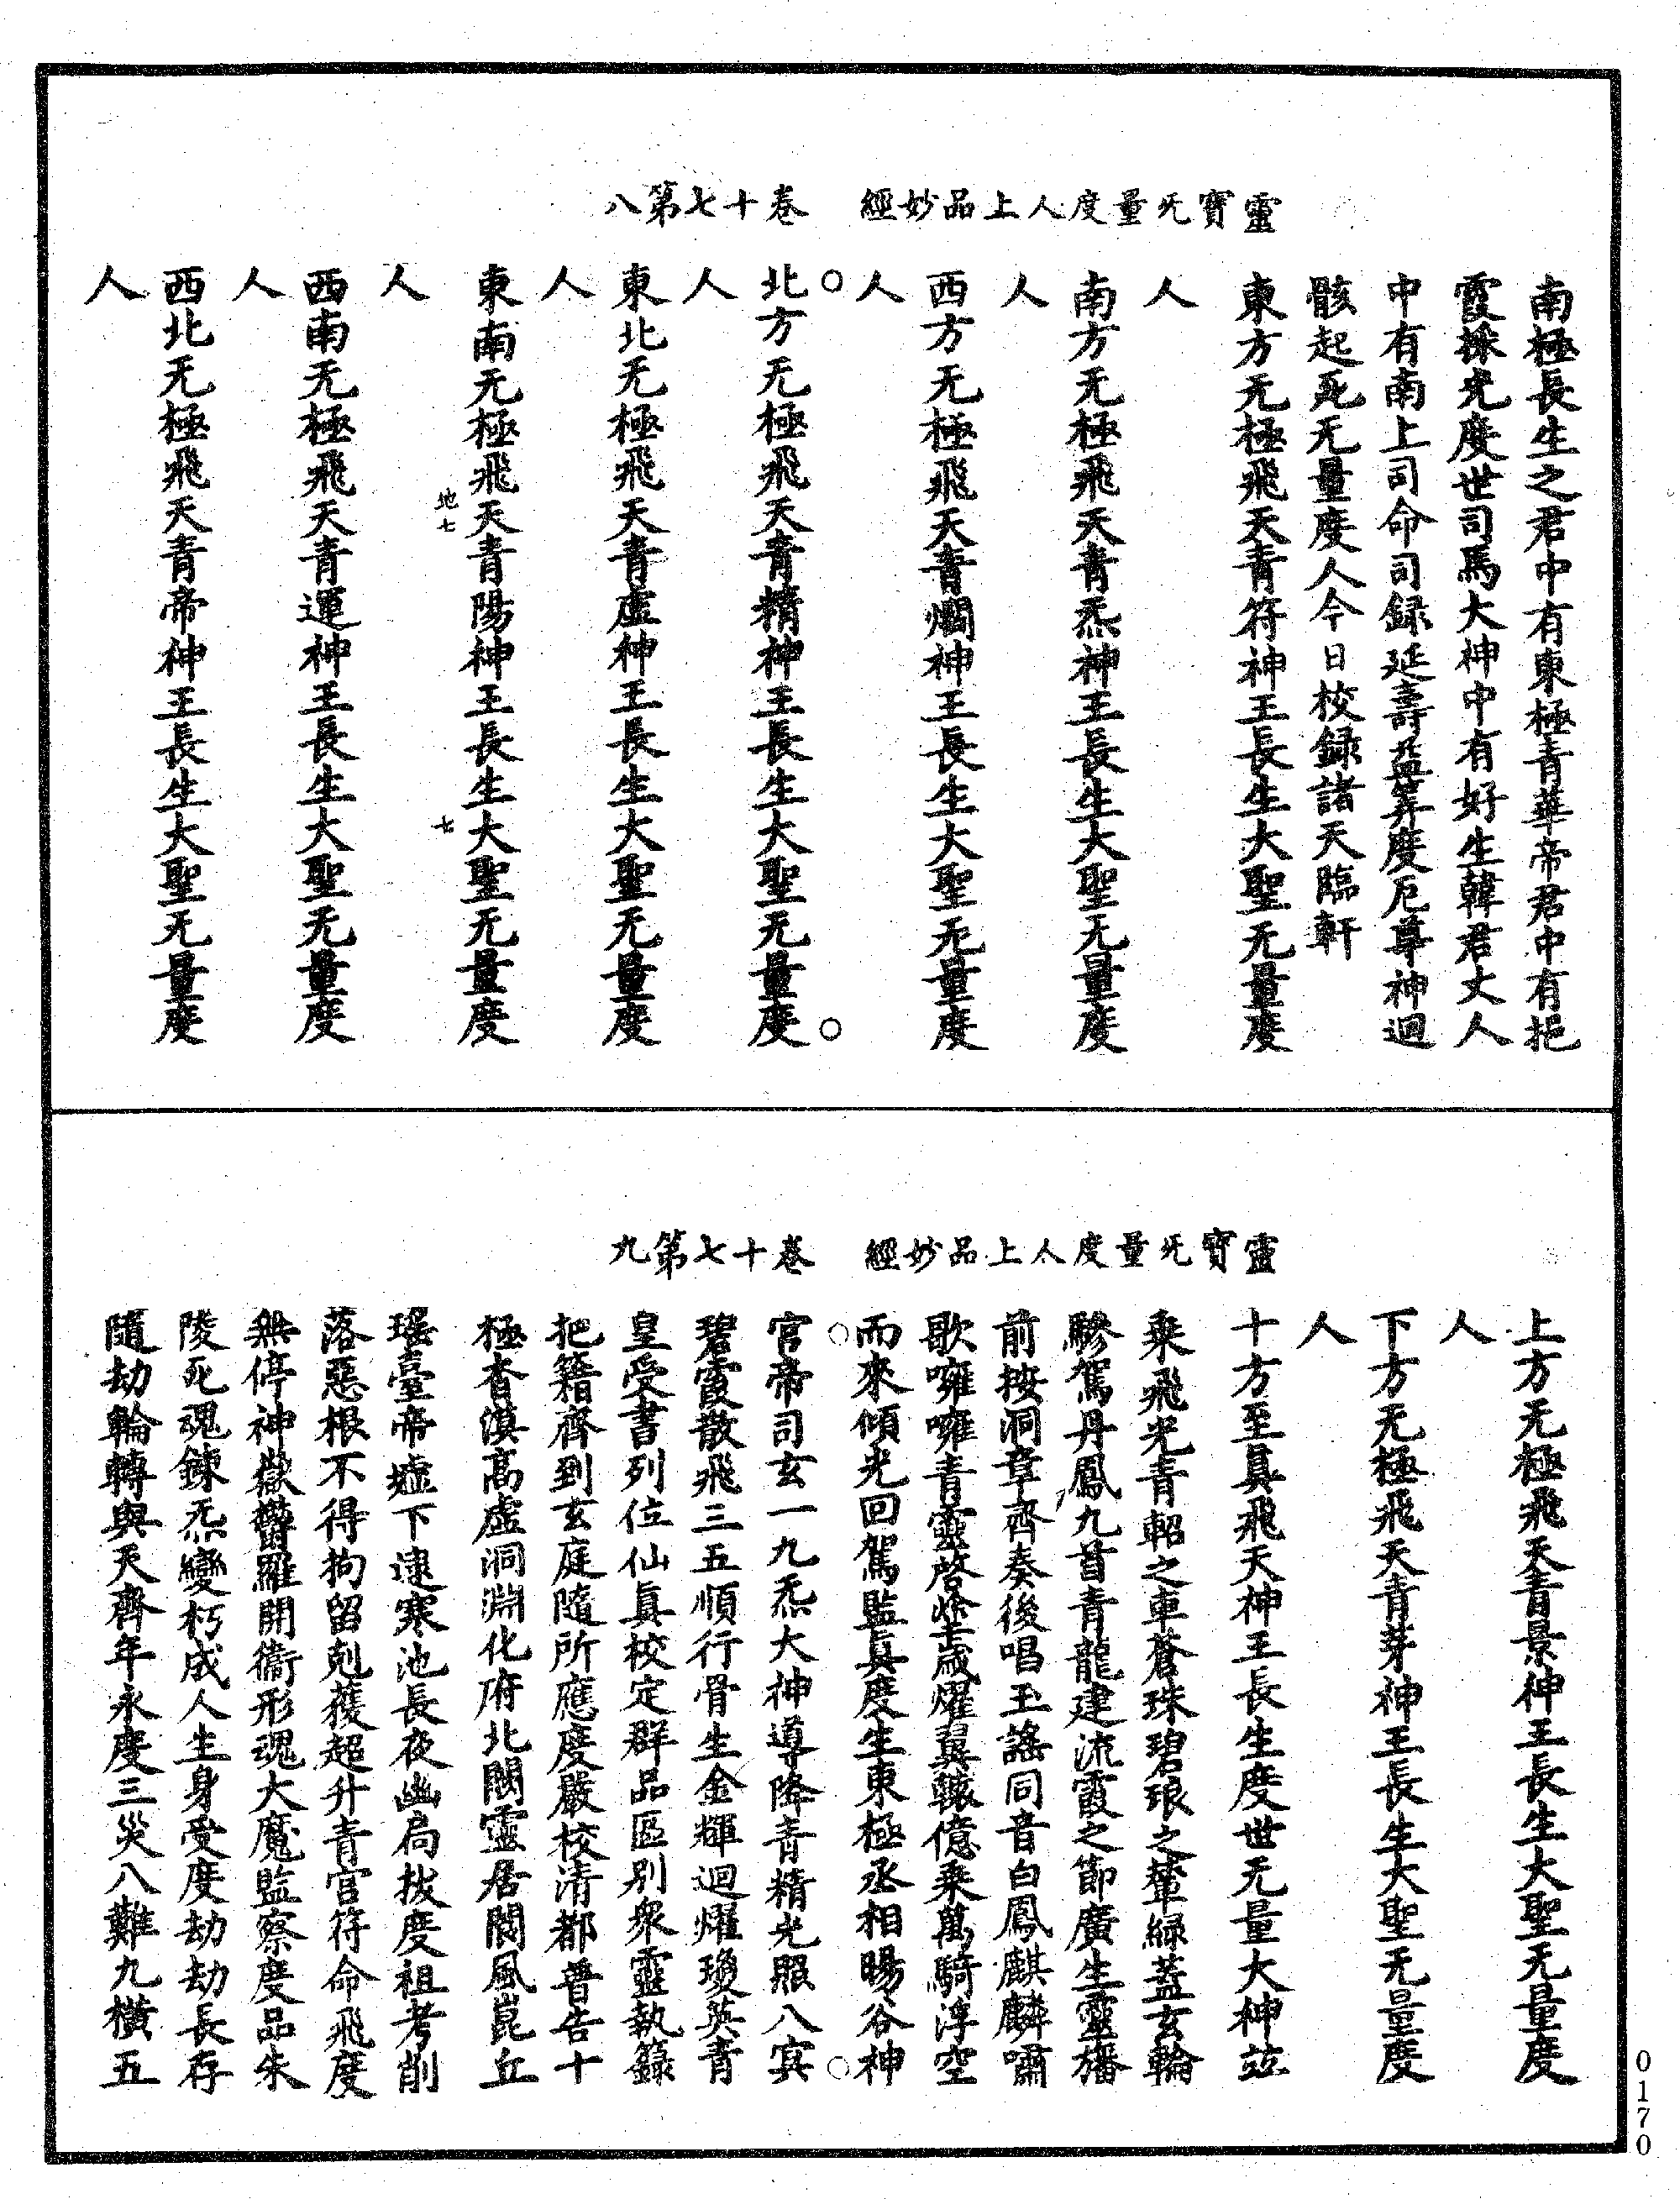 靈寶无量度人上品妙經　卷十七第八
南極長生之君中有東極青華帝君中有把
霞採光度世司馬大神中有好生韓君丈人
中有南上司命司録延壽益筭度厄尊神迴
骸起死无量度人今日校録諸天臨軒
東方无極飛天青符神王長生大聖无量度
人
南方无極飛天青炁神王長生大聖无量度
人
西方无極飛天青爛神王長生大聖无量度
人
北方无極飛天青精神王長生大聖无量度
人
東北无極飛天青虛神王長生大聖无量度
人
東南无極飛天青陽神王長生大聖无量度
人
地七　七
西南无極飛天青運神王長生大聖无量度
人
西北无極飛天青帝神王長生大聖无量度
人
靈寶无量度人上品妙經　卷十七第九
上方无極飛天青景神王長生大聖无量度
人
下方无極飛天青芽神王長生大聖无量度
人
十方至真飛天神王長生度世无量大神竝
乘飛光青軺之車蒼珠碧琅之輦緑蓋玄輪
驂駕丹鳳九首青龍建流霞之節廣生靈旛
前按洞章齊奏後唱玉謠同音白鳳麒麟嘯
歌嗈嗈青靈啓塗歲燿翼轅億乘萬騎浮空
而來傾光回駕監真度生東極丞相暘谷神
官帝司玄一九炁大神導降青精光照八㝠
碧霞散飛三五順行骨生金輝迴燿瓊英青
皇受書列位仙真校定群品區别衆靈執籙
把籍齊到玄庭隨所應度嚴校清都普告十
極杳漠高虛洞淵化府北闕靈居閬風崑丘
瑶臺帝墟下逮寒池長夜幽局拔度祖考削
落惡根不得拘留剋獲超升青宫符命飛度
無停神嶽鬱羅開衞形魂大魔監察度品朱
陵死魂鍊炁變朽成人生身受度劫劫長存
隨劫輪轉與天齊年永度三災八難九横五
0170